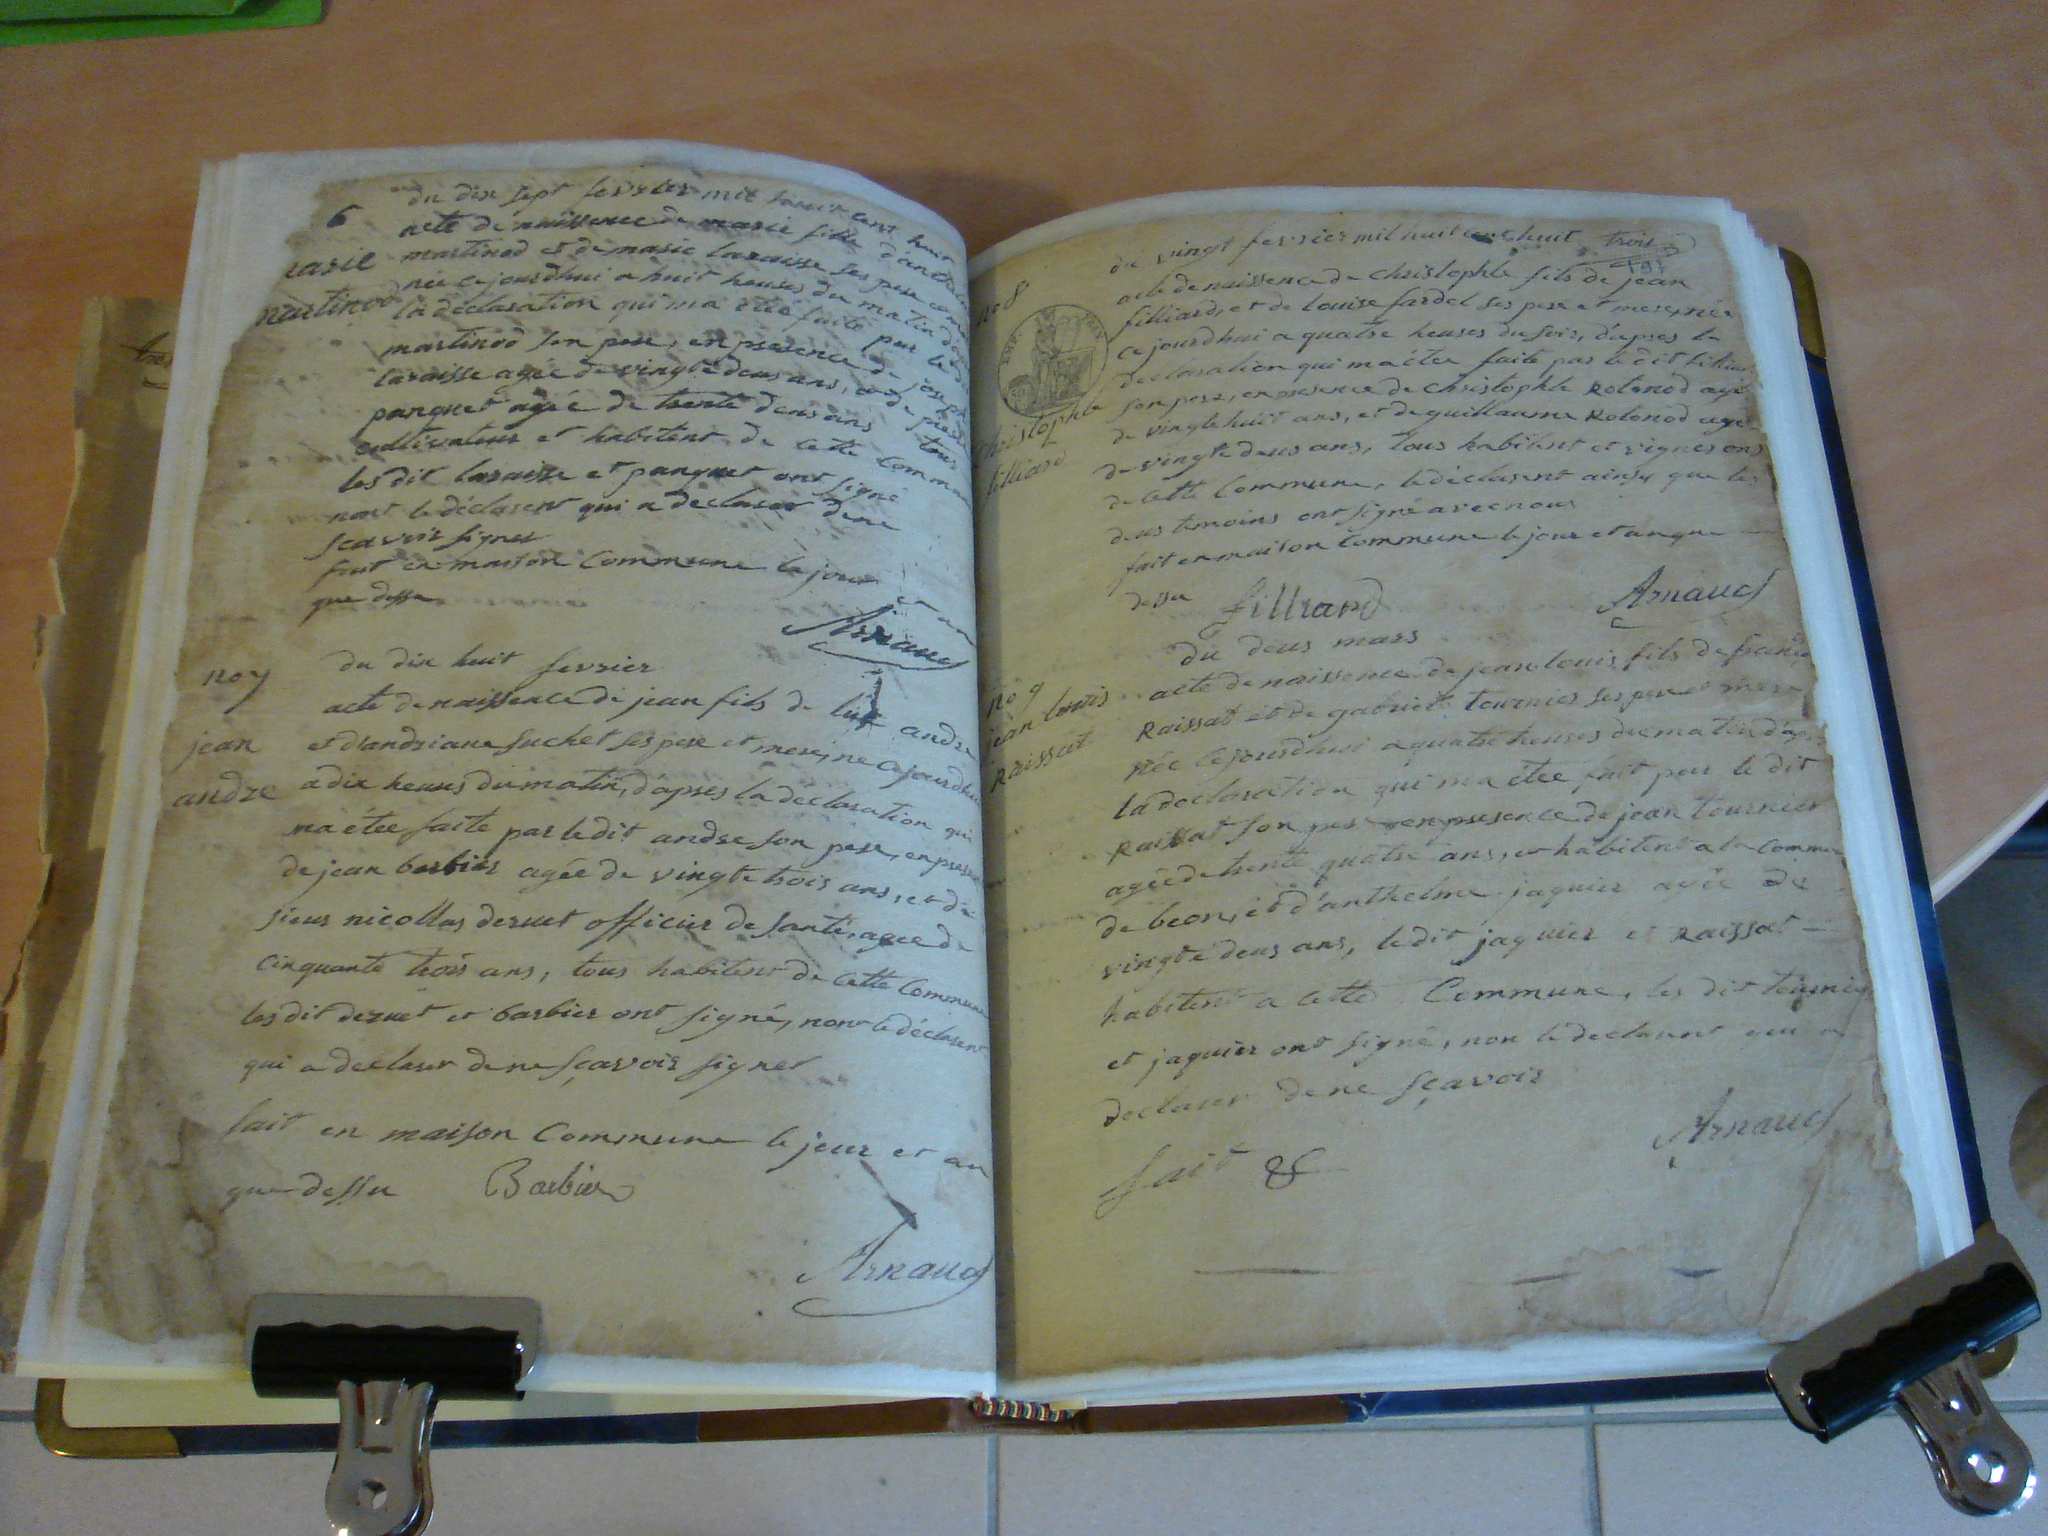 6
du dix sept fevrier mil huit cent huit
acte de naissence de marie fille
martinod et de marie laraisse ses pere
marie
martinod
née cejourdhui a huit heures du matin
la déclaration qui ma étée faite par le
martinod son pere, en presence de joseph
laraisse agée de vingte deus ans, et de
panquet agée de trente deus ans tous
cultivateur et habitent de cette commune
les dit laraisse et panquet ont signé
nont le déclarent qui a declarer de ne
scavoir signer
fait en maison commune le jour et an
que dessu
Arnaud
no 7
jean
andre
du dix huit fevrier
acte de naissence de jean fils de andre
et d'andriane suchet ses pere et mere, ne cejourdhui
a dix heures du matin, d'apres la déclaration qui
ma étée faite par le dit andre son pere, en presence
de jean barbier agée de vingte trois ans, et de
sieur nicollas dezuet officier de santé, agée de
cinquante trois ans, tous habitent de cette Commune
les dit dezuet et barbier ont signé, nont le déclarent
qui a declarer de ne sçavoir signer
fait en maison Commune le jour et an
que dessu Barbier
Arnaud
du vingt fevrier mil huit cent huit trois
no 8
acte de naissence de christophle fils de jean
filliard, et de louise fardel ses pere et mere, née
cejourdhui a quatre heures du soir, d'apres la
declaration qui ma étée faite par le dit filliard
christophle
filliard
son pere, en presence de christophle Rolonod agé
de vingte huit ans, et de guillaume Rolonod agé
de vingte deus ans, tous habitent et vignerons
de cette Commune, le déclarent ainsy que les
deus temoins ont signé avec nous
fait en maison Commune le jour et an que
dessu filliard Arnaud
du deus mars
no 9
jean louis
Raissat
acte de naissence de jean louis fils de
Raissat et de gabriel tournier ses pere et mere
née cejourdhui a quatre heures du matin d'apres
la declaration qui ma étée fait par le dit
Raissat son pere en presence de jean tournier
agée de trente quatre ans, et habitent a la Commune
de beon, et d'anthelme jaquier agée de
vingte deus ans, le dit jaquier et Raissat
habitent a cette Commune, les dit tournier
et jaquier ont signé, non le declarent qui a
declarer de ne sçavoir
fait &
Arnaud